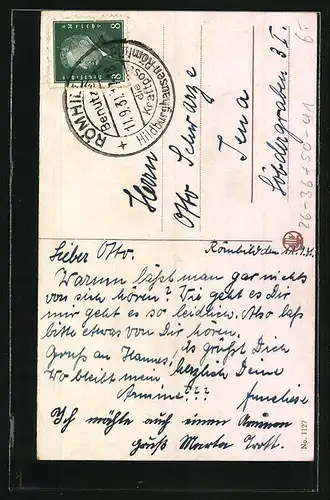 8 8
RÖMHILD
11.9.31
Benutzt die Kraftpost
Hildburghausen-Römhild
6.-
Herrn
Otto Schwarze
Jena
26-36+50-41
Lieber Otto.
Römhild den 11.9.31.
Warum läßt man gar nichts
von sich hören? Wie geht es Dir
mir geht es so leidlich. Also laß
bitte etwas von Dir hören.
Gruß an Hannes, es grüßt Dich
Wo bleibt mein herzlich Deine
Armine??? Anneliese
Ich möchte auch einen
gruß Marta Trott.
No. 1127